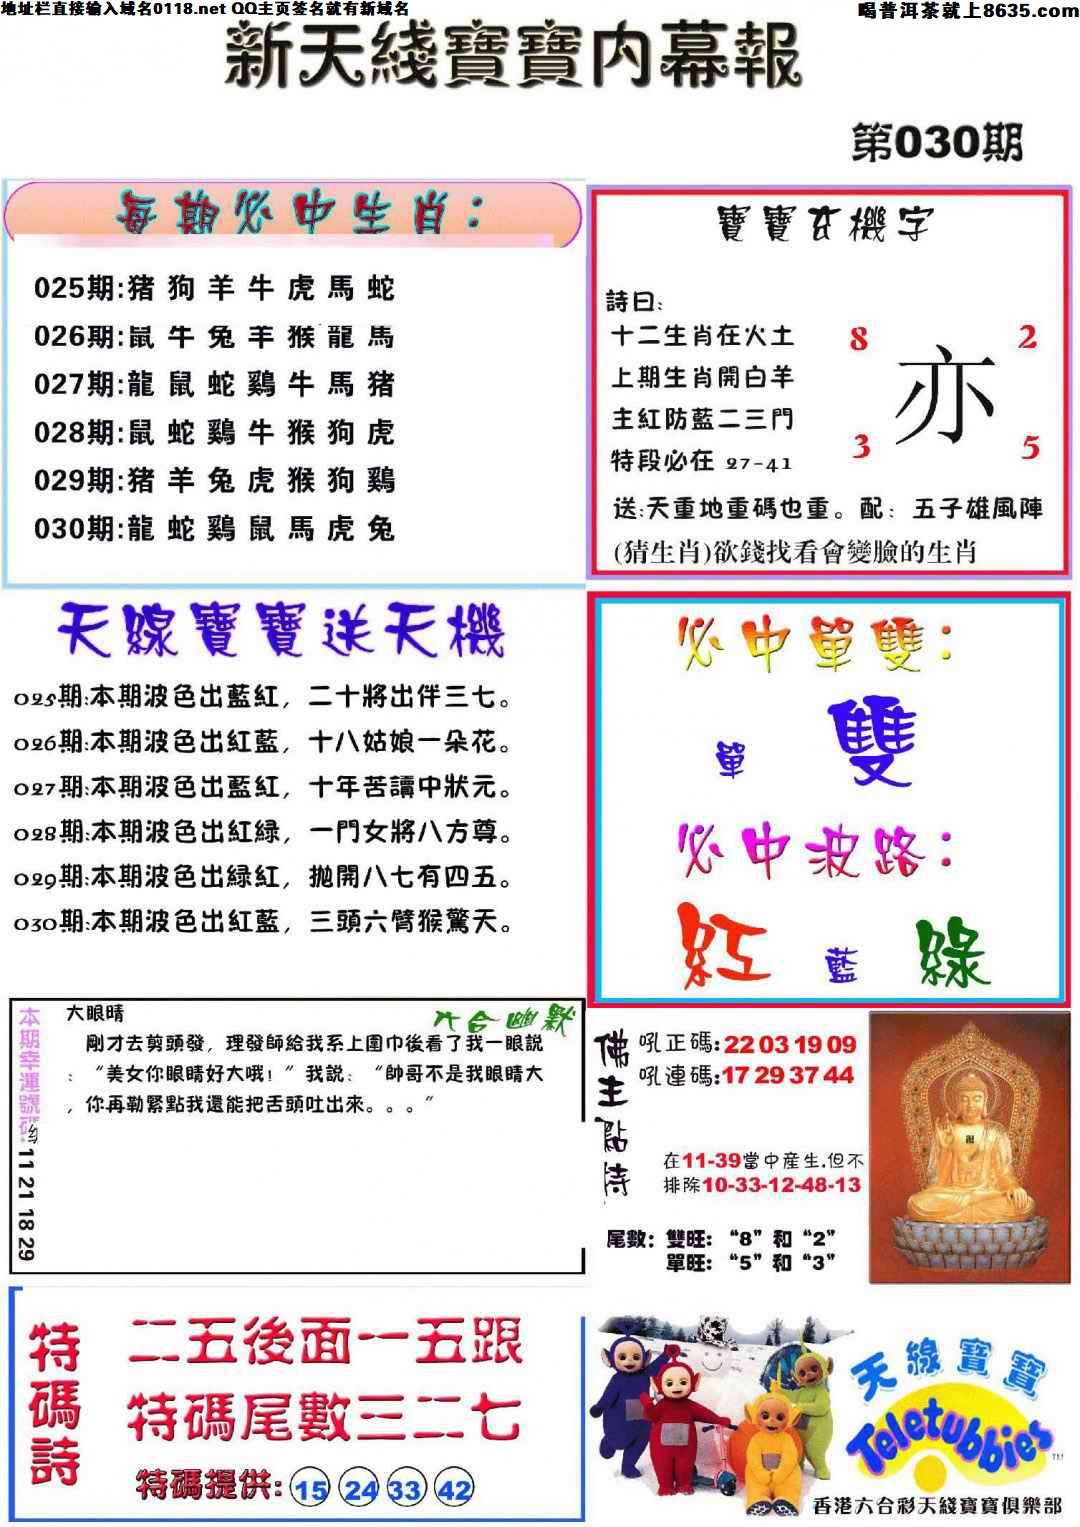 地址栏直接输入域名0118.net QQ主页签名就有新域名
喝普洱茶就上8635.com
新天綫寶寶内幕報
第030期
每期必中生肖：
025期:猪 狗 羊 牛 虎 馬 蛇
026期:鼠 牛 兔 羊 猴 龍 馬
027期:龍 鼠 蛇 鷄 牛 馬 猪
028期:鼠 蛇 鷄 牛 猴 狗 虎
029期:猪 羊 兔 虎 猴 狗 鷄
030期:龍 蛇 鷄 鼠 馬 虎 兔
寶寶玄機字
詩曰:
十二生肖在火土
上期生肖開白羊
主紅防藍二三門
特段必在 27-41
8 2
亦
3 5
送:天重地重碼也重。配：五子雄風陣
(猜生肖)欲錢找看會變臉的生肖
天線寶寶送天機
025期:本期波色出藍紅，二十將出伴三七。
026期:本期波色出紅藍，十八姑娘一朵花。
027期:本期波色出藍紅，十年苦讀中狀元。
028期:本期波色出紅綠，一門女將八方尊。
029期:本期波色出綠紅，拋開八七有四五。
030期:本期波色出紅藍，三頭六臂猴驚天。
必中單雙：
單 雙
必中波路：
紅 藍 綠
本期幸運號碼:
11 21 18 29
六合幽默
大眼睛
剛才去剪頭發，理發師給我系上圍巾後看了我一眼説
：“美女你眼睛好大哦！”我説：“帥哥不是我眼睛大
，你再勒緊點我還能把舌頭吐出來。。。”
佛主點特
吼正碼:22 03 19 09
吼連碼:17 29 37 44
在11-39當中産生.但不
排除10-33-12-48-13
尾數：雙旺：“8”和“2”
單旺：“5”和“3”
特碼詩
二五後面一五跟
特碼尾數三二七
特碼提供: 15 24 33 42
天線寶寶
Teletubbies
TM
香港六合彩天綫寶寶俱樂部